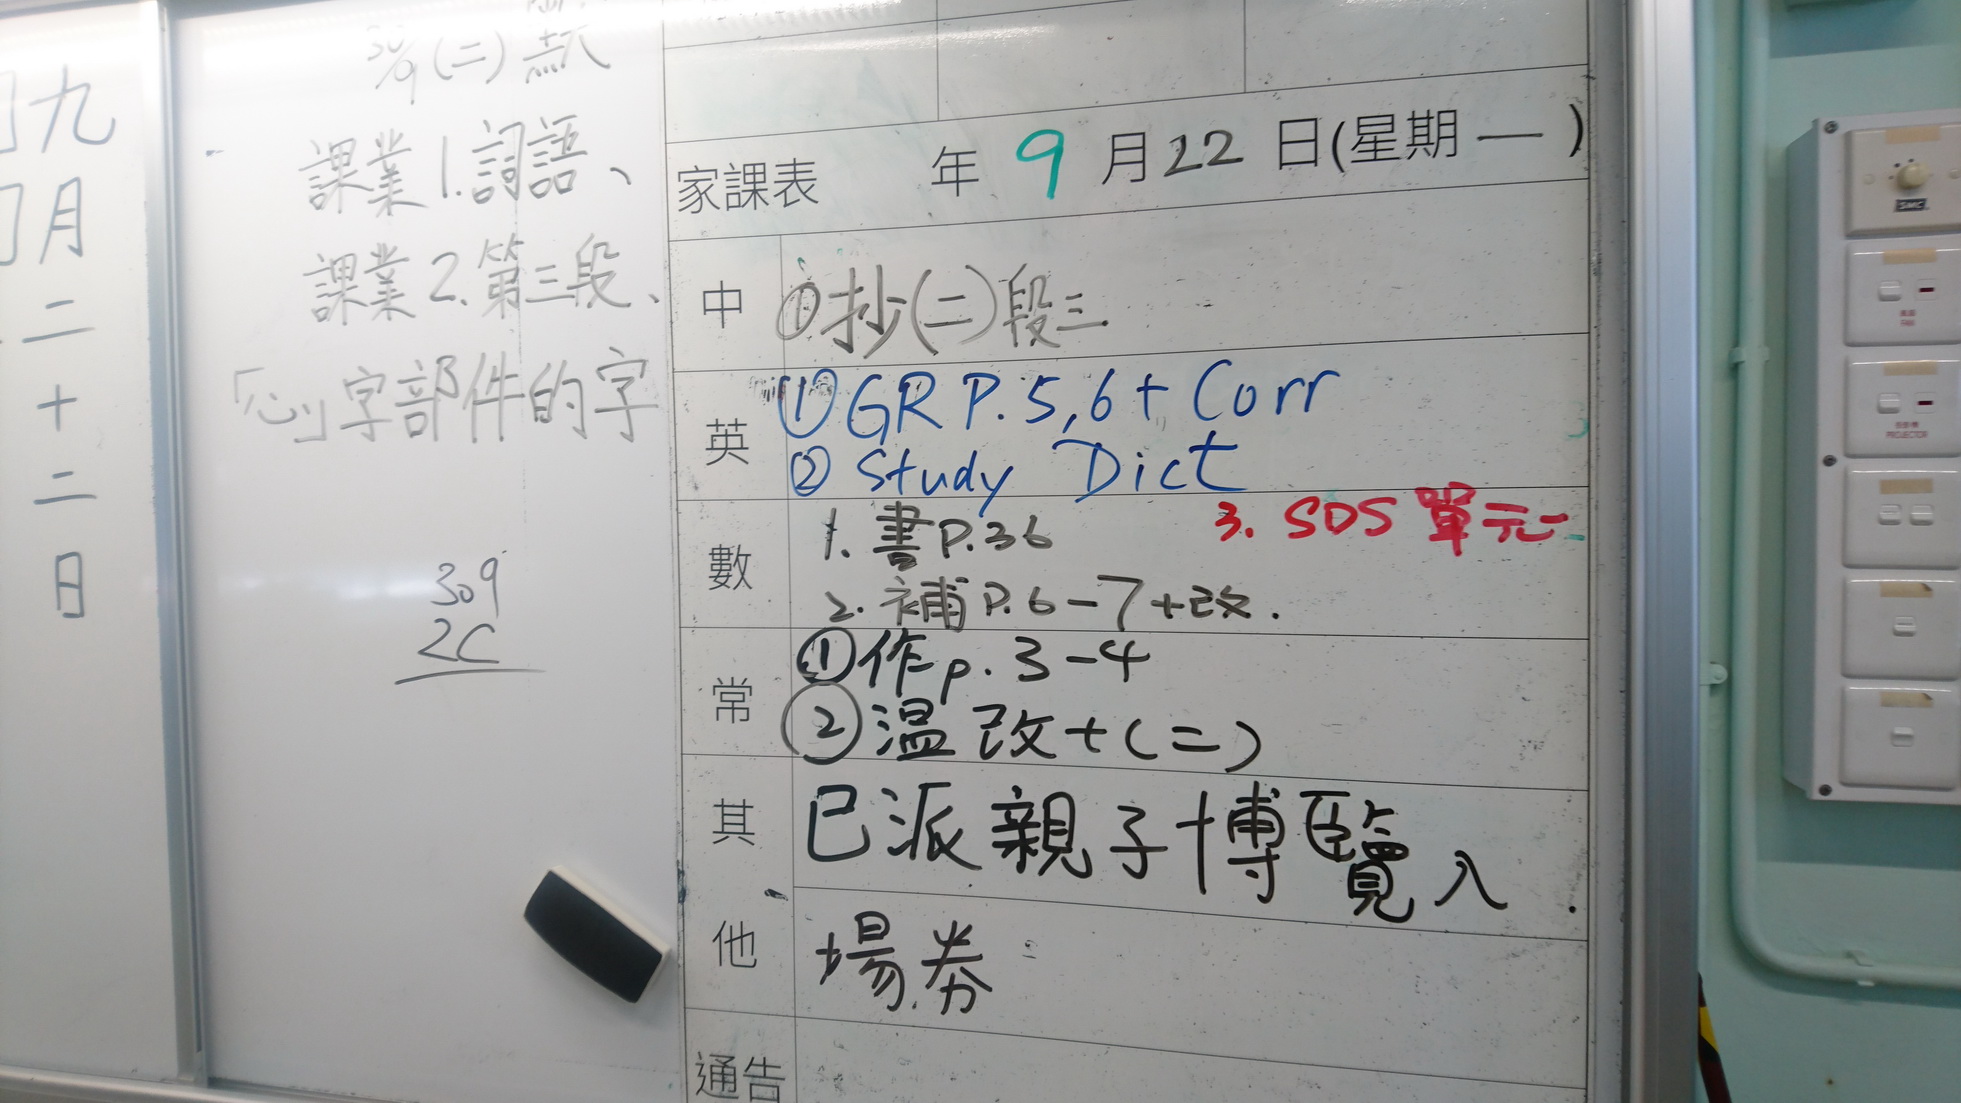 九月二十二日
30/9(二)默
課業1.詞語、
課業2.第三段、
「心」字部件的字
309
2C
家課表 年9月22日(星期一)
中 ①抄(二)段三
英 ①GR P.5,6+Corr
②Study Dict
數 1.書P.36 3.SDS單元二
2.補P.6-7+改.
常 ①作p.3-4
②温改+(二)
其他 已派親子博覽入
場券
通告
SMC
FAN
PROJECTOR